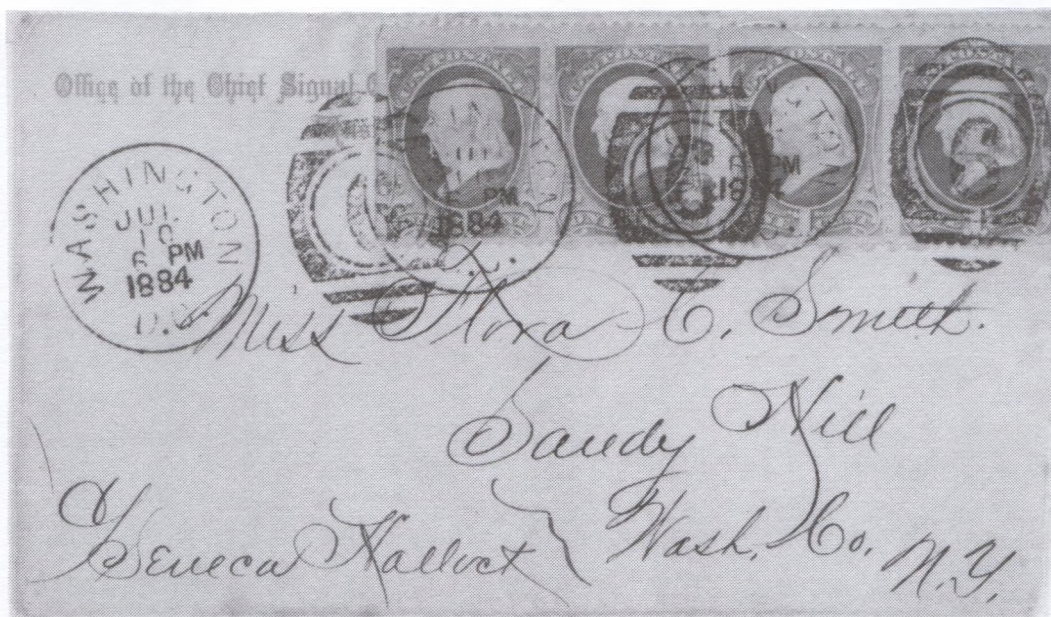 Office of the Chief Signal
WASHINGTON
JUL
10
6 PM
1884
D.C.
TON
PM
1884
C.
STON
6 PM
1884
Miss Flora C. Smith.
Sandy Hill
Wash. Co. N.Y.
Seneca Hallock